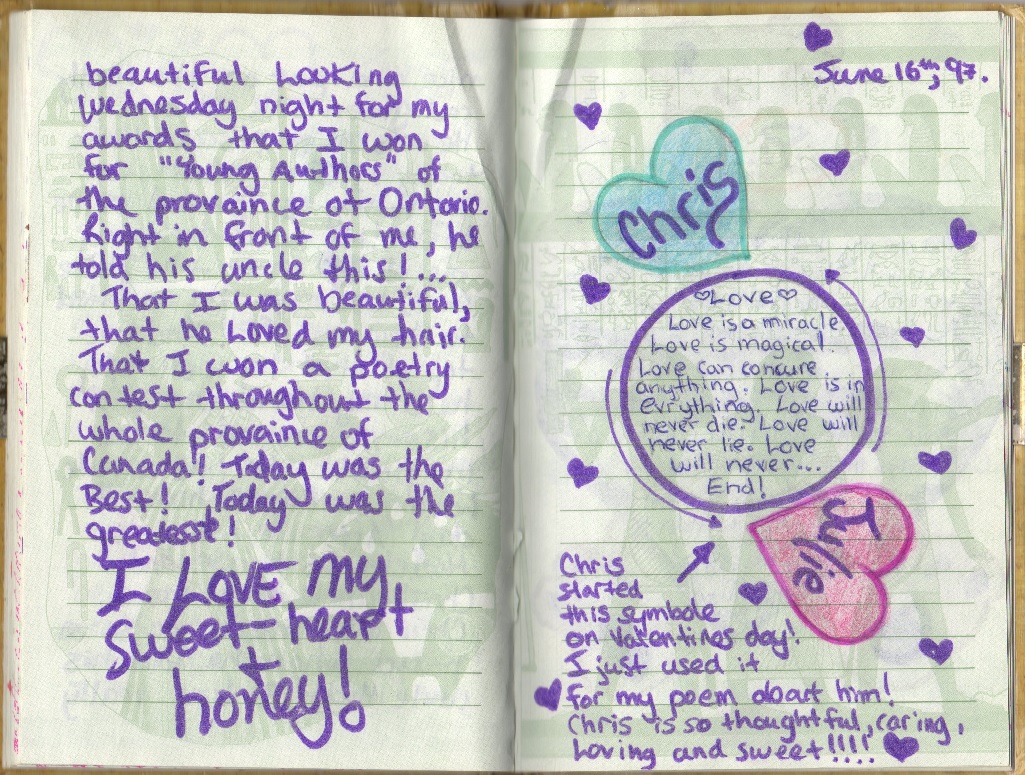 beautiful looking
Wednesday night for my
awards that I won
for "Young Authors" of
the provaince of Ontario.
Right in front of me, he
told his uncle this!...
That I was beautiful,
that he Loved my hair.
That I won a poetry
contest throughout the
whole provaince of
Canada! Today was the
Best! Today was the
greatesst!
I LOVE my
sweet heart
honey!
June 16th, 97.
Chris
♡Love♡
Love is a miracle
Love is magical.
Love can concure
anything. Love is in
evrything. Love will
never die. Love will
never lie. Love
will never...
End!
Julie
Chris
started
this symbole
on valentines day!
I just used it
for my poem about him!
Chris is so thoughtful, caring,
Loving and sweet!!!!